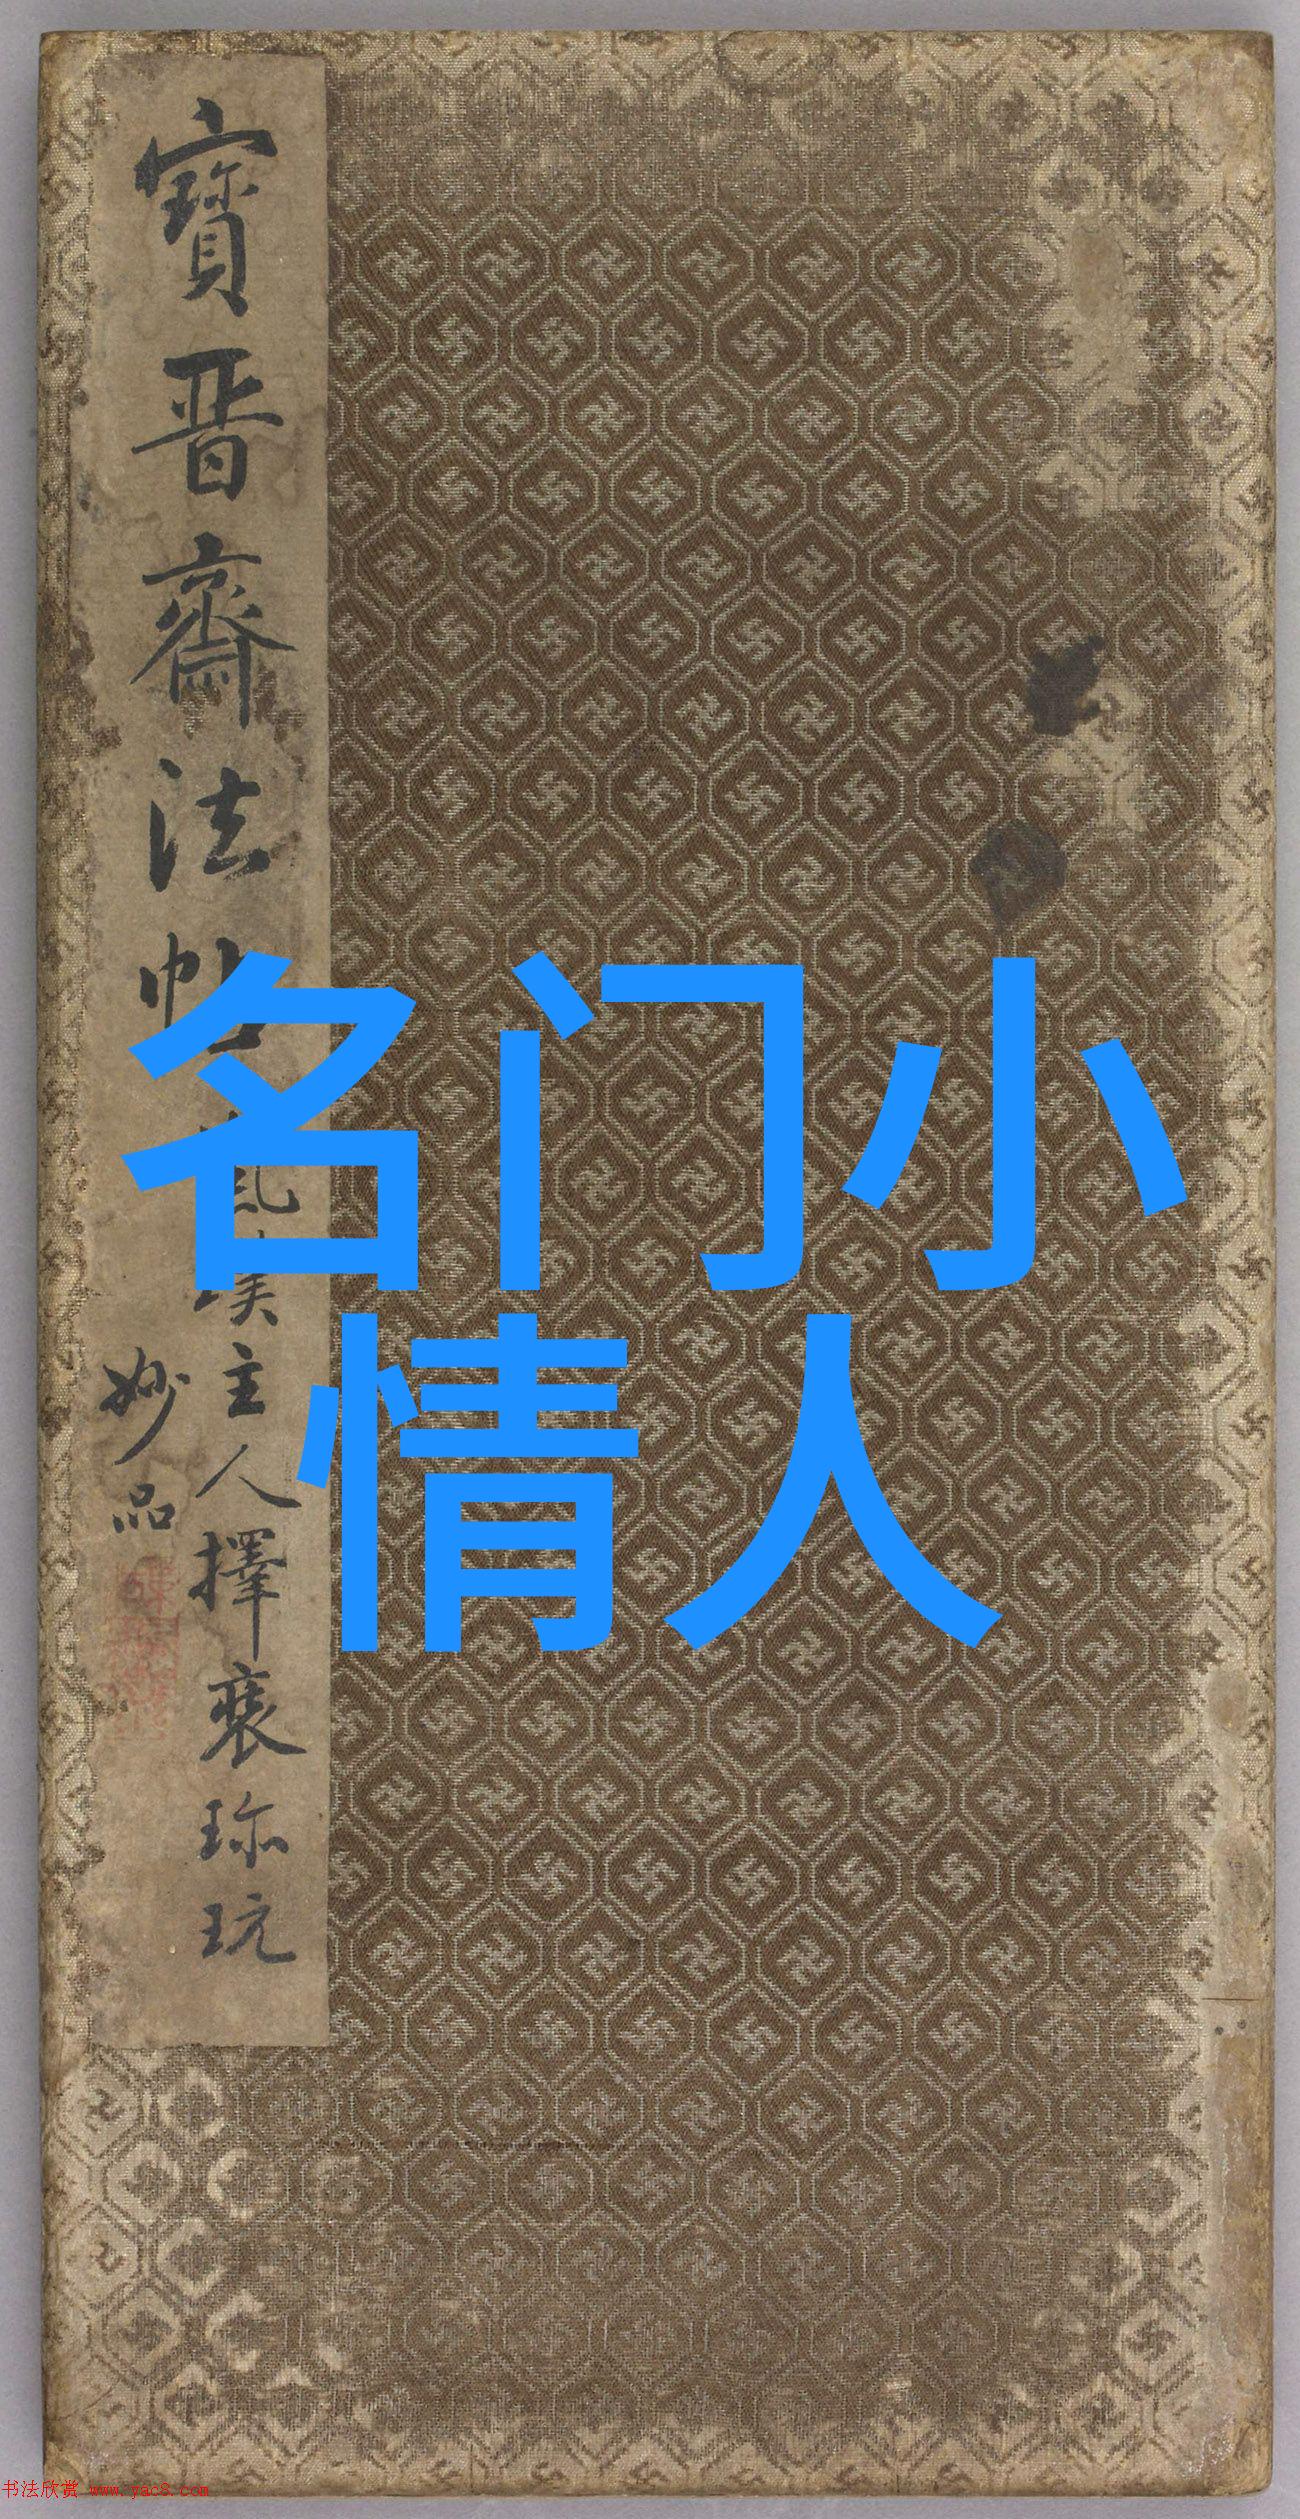 寳晋齋法帖
主人擇裘珎玩
妙品
名门小
情人
书法欣赏 www.yac8.com